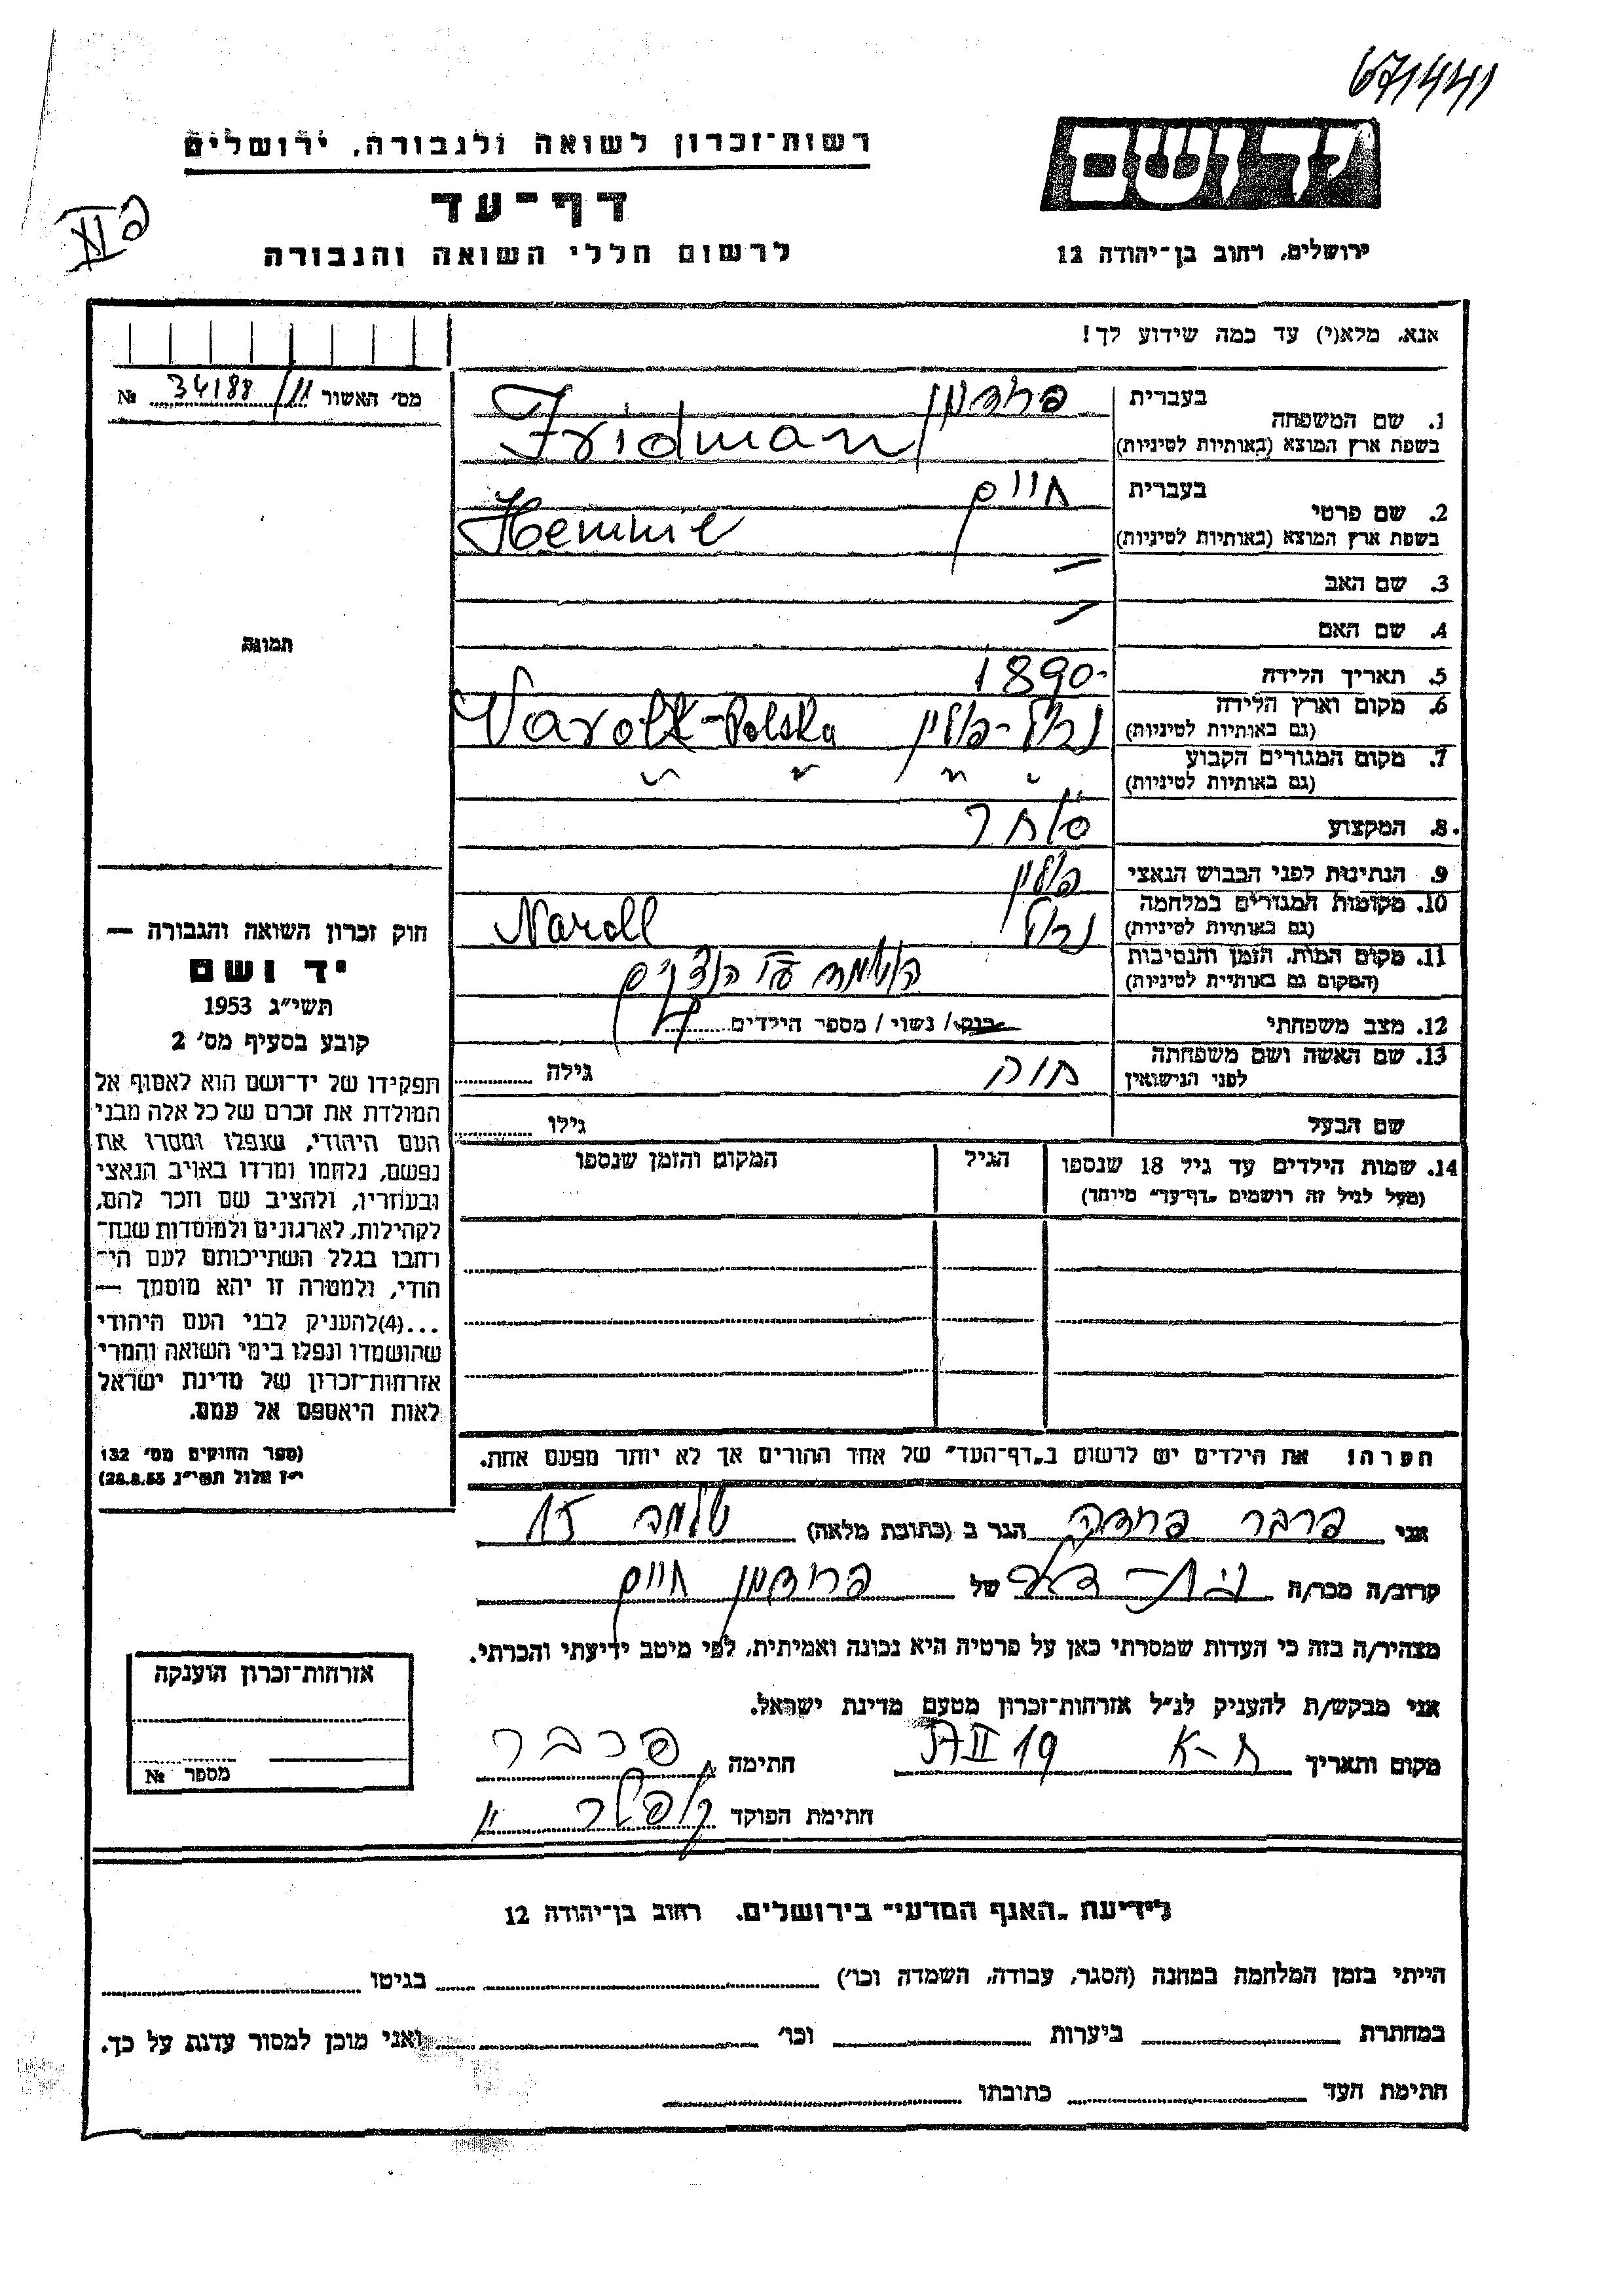 671441
יד ושם
ירושלים, רחוב בן-יהודה 12
רשות-זכרון לשואה ולגבורה, ירושלים
דף-עד
לרשום חללי השואה והגבורה
אנא, מלא(י) עד כמה שידוע לך!
מס' האשור 34188/11 №
1. שם המשפחה
בעברית פרידמן
בשפת ארץ המוצא (באותיות לטיניות) Fridman
2. שם פרטי
בעברית חיים
בשפת ארץ המוצא (באותיות לטיניות)
3. שם האב –
4. שם האם –
5. תאריך הלידה 1890-
6. מקום וארץ הלידה
(גם באותיות לטיניות) נרול-פולין Narolk-Polska
7. מקום המגורים הקבוע
(גם באותיות לטיניות) " " " "
8. המקצוע סוחר
9. הנתינות לפני הכבוש הנאצי פולין
10. מקומות המגורים במלחמה
(גם באותיות לטיניות) נרול Naroll
11. מקום המות, הזמן והנסיבות
(המקום גם באותיות לטיניות) הושמד ע"י הנאצים
12. מצב משפחתי רוק / נשוי / מספר הילדים
13. שם האשה ושם משפחתה
לפני הנישואין חוה גילה
שם הבעל גילו
14. שמות הילדים עד גיל 18 שנספו הגיל המקום והזמן שנספו
(מעל לגיל זה רושמים „דף-עד" מיוחד)
הערה! את הילדים יש לרשום ב„דף-העד" של אחד ההורים אך לא יותר מפעם אחת.
תמונה
חוק זכרון השואה והגבורה —
יד ושם
תשי"ג 1953
קובע בסעיף מס' 2
תפקידו של יד-ושם הוא לאסוף אל
המולדת את זכרם של כל אלה מבני
העם היהודי, שנפלו ומסרו את
נפשם, נלחמו ומרדו באויב הנאצי
ובעוזריו, ולהציב שם וזכר להם,
לקהילות, לארגונים ולמוסדות שנח-
רבו בגלל השתייכותם לעם הי-
הודי, ולמטרה זו יהא מוסמך —
...(4)להעניק לבני העם היהודי
שהושמדו ונפלו בימי השואה והמרי
אזרחות-זכרון של מדינת ישראל
לאות היאספם אל עמם.
(ספר החוקים מס' 132
י"ז אלול תשי"ג 28.8.53)
אני פרבר פרידה הגר ב (כתובת מלאה)
קרוב/ה מכר/ה בת-דוד של פרידמן חיים
מצהיר/ה בזה כי העדות שמסרתי כאן על פרטיה היא נכונה ואמיתית, לפי מיטב ידיעתי והכרתי.
אני מבקש/ת להעניק לנ"ל אזרחות-זכרון מטעם מדינת ישראל.
מקום ותאריך ת-א 19 II 57 חתימה פרבר
חתימת הפוקד
אזרחות-זכרון הוענקה
מספר №
לידיעת „האגף המדעי" בירושלים, רחוב בן-יהודה 12
הייתי בזמן המלחמה במחנה (הסגר, עבודה, השמדה וכו') בגיטו
במחתרת ביערות וכו' ואני מוכן למסור עדות על כך.
חתימת העד כתובתו